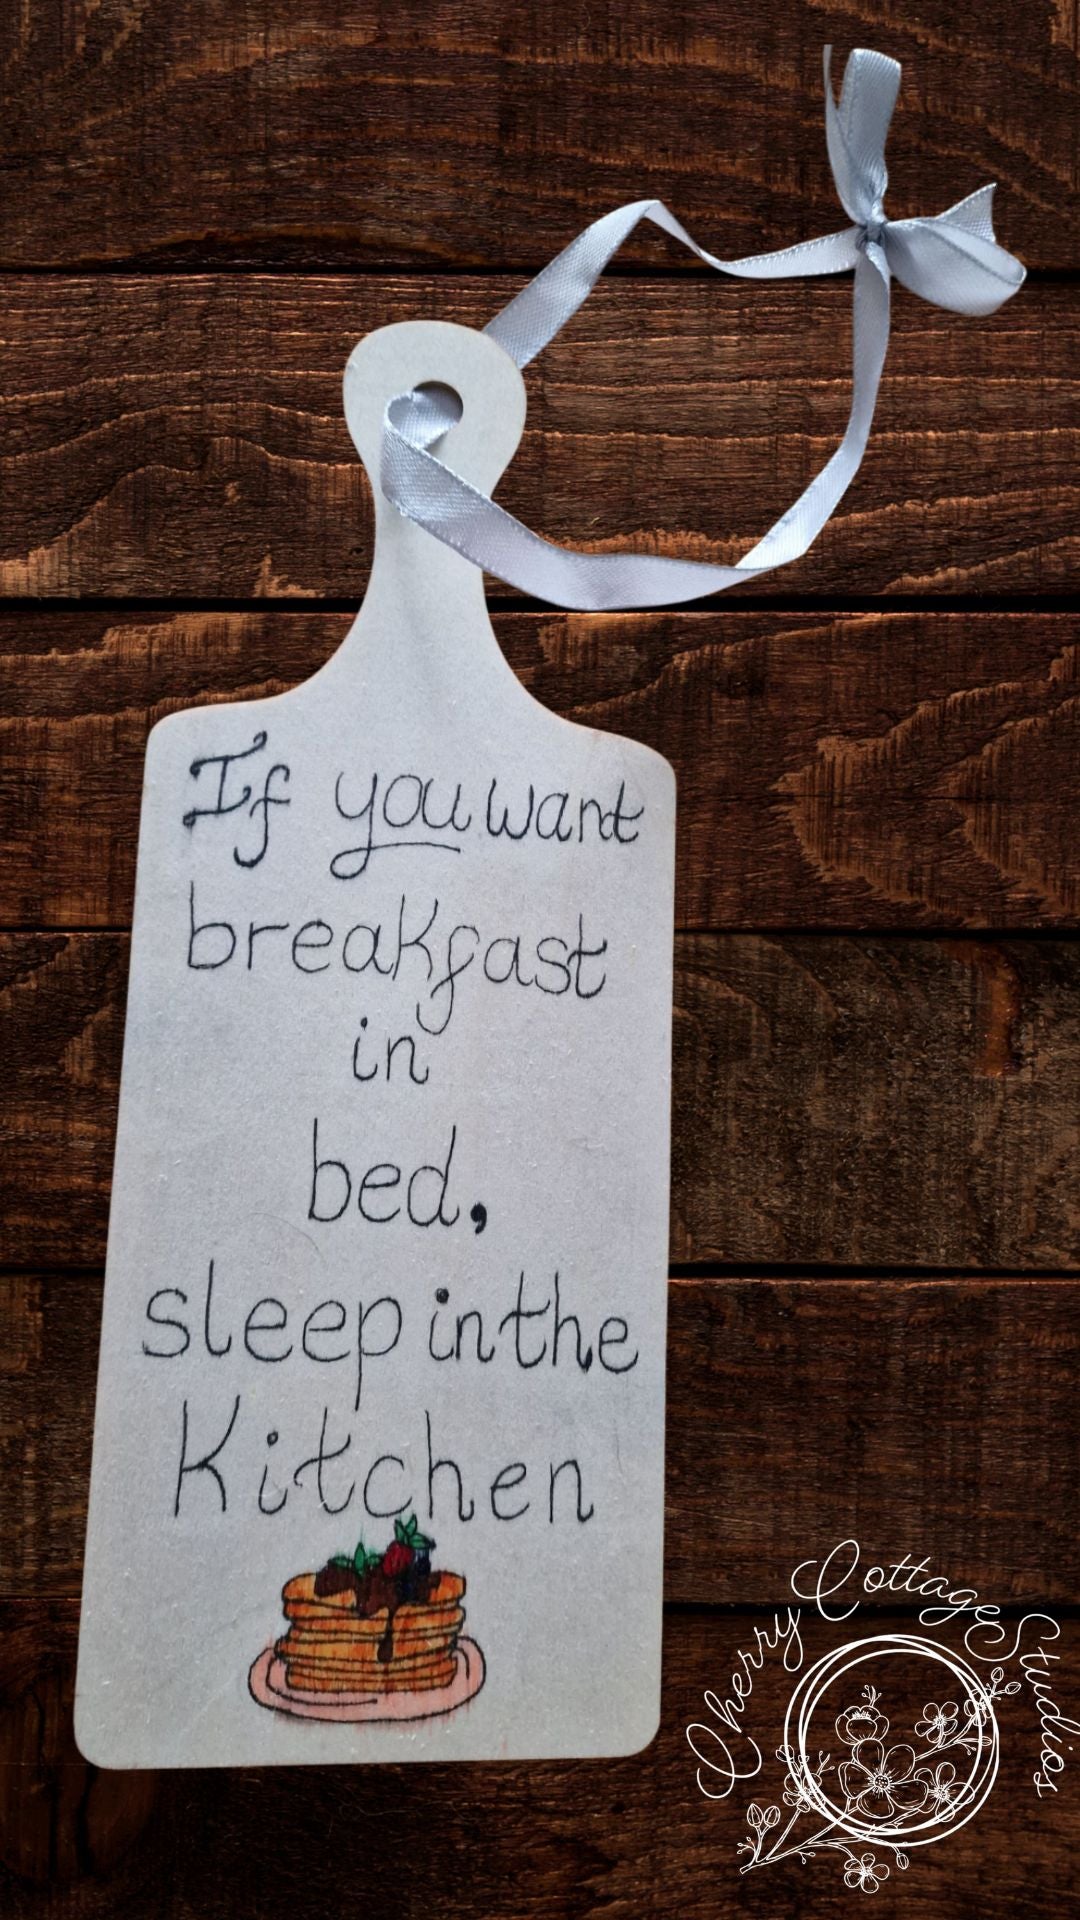 If you want
breakfast
in
bed,
sleep in the
Kitchen
Cherry Cottage Studios